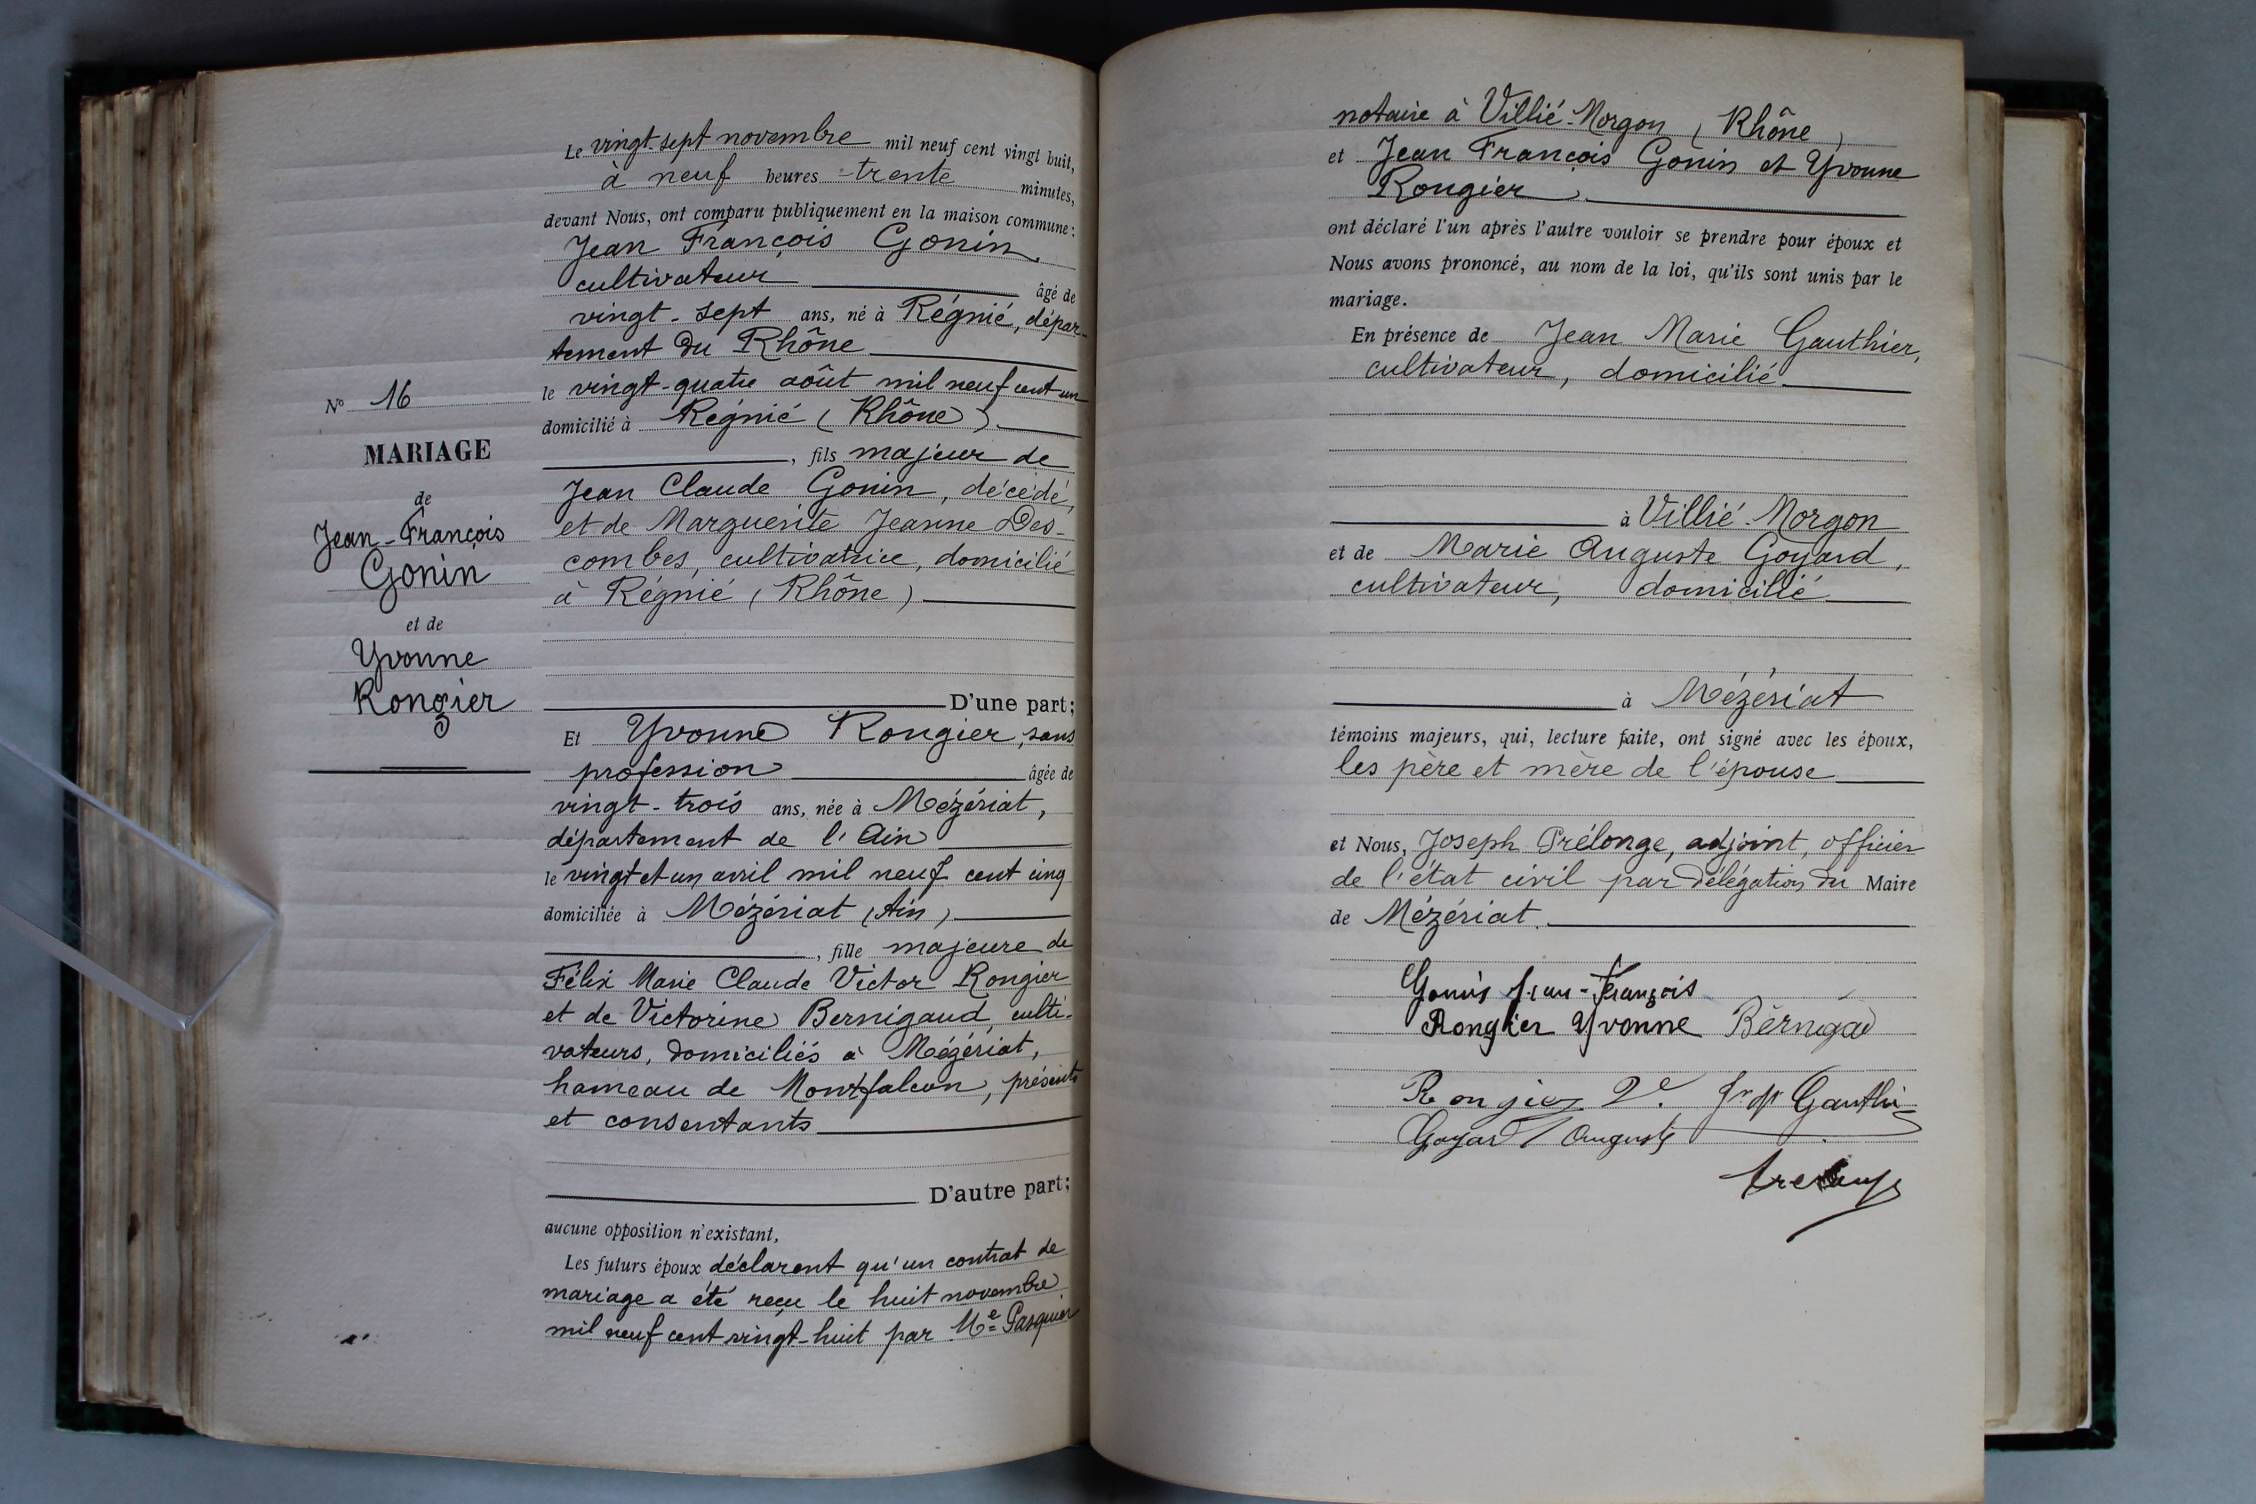 Nº 16
MARIAGE
de
Jean-François
Gonin
et de
Yvonne
Rongier
Le vingt-sept novembre mil neuf cent vingt huit,
à neuf heures trente minutes,
devant Nous, ont comparu publiquement en la maison commune:
Jean François Gonin,
cultivateur âgé de
vingt-sept ans, né à Régnié, dépar-
tement du Rhône
le vingt-quatre août mil neuf cent un
domicilié à Régnié (Rhône)
, fils majeur de
Jean Claude Gonin, décédé,
et de Marguerite Jeanne Des-
combes, cultivatrice, domicilié
à Régnié (Rhône)
D'une part;
Et Yvonne Rongier, sans
profession âgée de
vingt-trois ans, née à Mézériat,
département de l'Ain
le vingt et un avril mil neuf cent cinq
domiciliée à Mézériat (Ain)
, fille majeure de
Félix Marie Claude Victor Rongier
et de Victorine Bernigaud, culti-
vateurs, domiciliés à Mézériat,
hameau de Montfalcon, présents
et consentants
D'autre part;
aucune opposition n'existant,
Les futurs époux déclarent qu'un contrat de
mariage a été reçu le huit novembre
mil neuf cent vingt-huit par Me Pasquier
notaire à Villié-Morgon (Rhône)
et Jean François Gonin et Yvonne
Rongier
ont déclaré l'un après l'autre vouloir se prendre pour époux et
Nous avons prononcé, au nom de la loi, qu'ils sont unis par le
mariage.
En présence de Jean Marie Gauthier,
cultivateur, domicilié
à Villié-Morgon
et de Marie Auguste Goyard,
cultivateur, domicilié
à Mézériat
témoins majeurs, qui, lecture faite, ont signé avec les époux,
les père et mère de l'épouse
et Nous, Joseph Prélonge, adjoint, officier
de l'état civil par délégation du Maire
de Mézériat.
Gonin Jean-François
Rongier Yvonne Bernigad
Rongier Gauthi
Goyard Auguste